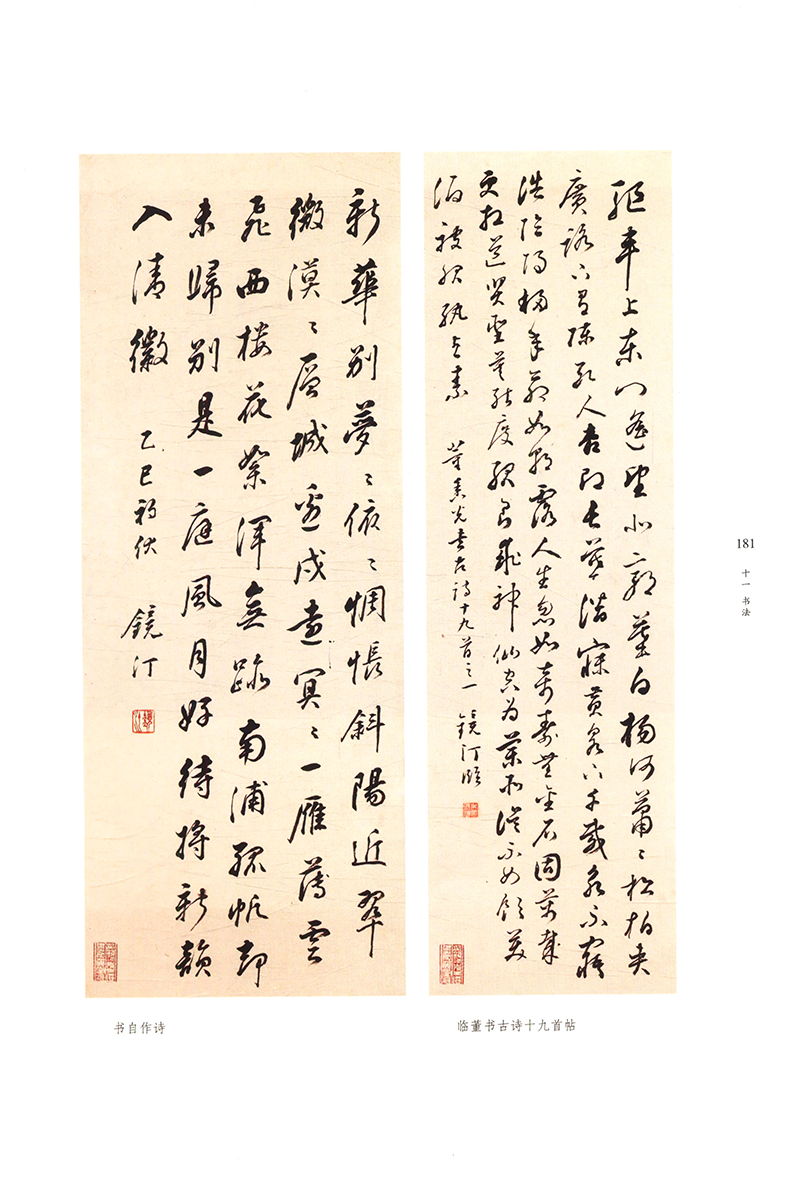 驅車上東門遙望北郭墓白楊何蕭〻松柏夾
廣路下有陳死人杳即長暮潛寐黃泉下千載永不寤
浩陰陽移年命如朝露人生忽如寄壽無金石固萬歲
更相送賢聖莫能度服食求神仙多為藥所誤不如飲美
酒被服紈與素 董香光書古詩十九首之一 鏡汀臨
临董书古诗十九首帖
新華別夢〻依〻惆悵斜陽近翠
微漠〻層城邊戍遠冥〻一雁薄雲
飛西樓花絮渾無跡南浦孤帆却
未歸別是一庭風月好待將新韻
入清徽 乙巳初伏 鏡汀
书自作诗
181
十一 书法